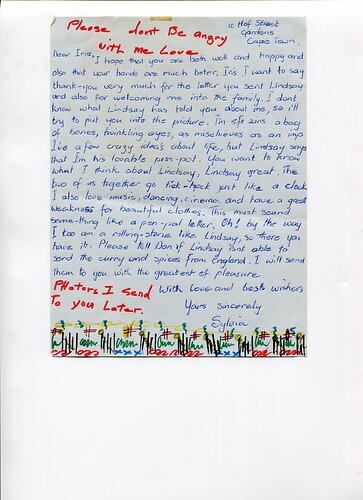 Please dont Be angry
with me Love
10 Hof Street
Gardens
Cape Town.
Dear Iris,
I hope that you are both well and happy and
also that your hands are much better. Iris I want to say
thank-you very much for the letter you sent Lindsay
and also for welcoming me into the family. I dont
know what Lindsay has told you about me, so ill
try to put you into the picture. I'm 5ft 2ins a bag
of bones, twinkling eyes, as mischievies as an imp
I've a few crazy idea's about life, but Lindsay says
that Im his lovable puss-pot. You want to know
what I think about Lindsay, Lindsay great. The
two of us together go tick-tock just like a clock
I also love music, dancing, cinema and have a great
weakness for beautiful clothes. This must sound
some-thing like a pen-pal letter. Oh! by the way
I too am a rolling-stone like Lindsay, so there you
have it. Please tell Don if Lindsay isnt able to
send the curry and spices from England. I will send
them to you with the greatest of pleasure
PHotors I send
To you Later.
With Love and bests wishers
Yours sincerely
Sylvia